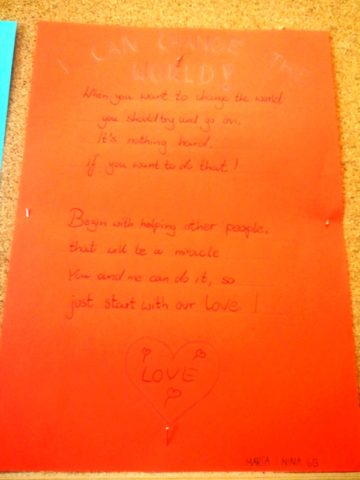 I CAN CHANGE THE
WORLD!
When you want to change the world
you should try and go on.
It's nothing hard.
If you want to do that!
Begin with helping other people.
that will be a miracle
You and me can do it, so
just start with our love!
LOVE
MARÍA i NINA 6B